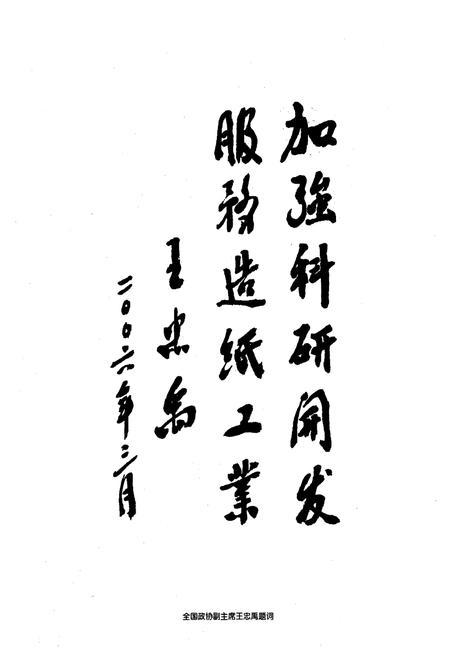 加強科研開发
服務造紙工業
王忠禹
二〇〇六年三月
全国政协副主席王忠禹题词